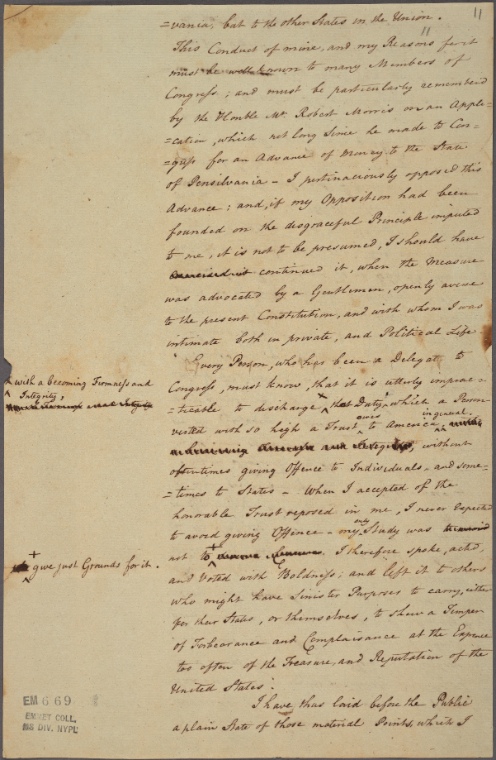 11
=vania, but to the other States in the Union.
This Conduct of mine, and my Reasons for it
must be well known to many Members of
Congress; and must be particularly remembered
by the Honble Mr. Robert Morris on an Appli=
=cation, which not long since he made to Con=
=gress for an Advance of Money to the State
of Pensilvania – I pertinaciously opposed this
Advance: and, if my Opposition had been
founded on the disgraceful Principle imputed
to me, it is not to be presumed, I should have
continued it, when the Measure
was advocated by a Gentleman, openly averse
to the present Constitution, and with whom I was
intimate both in private, and Political Life
Every Person, who has been a Delegate to
Congress, must know, that it is utterly imprac=
with a becoming Firmness and
Integrity,
=ticable to discharge that Duty, which a Person
vested with so high a Trust owes to America in general,
and Integrity, without
oftentimes giving Offence to Individuals – and some=
=times to States – When I accepted of the
honorable Trust reposed in me, I never expected
to avoid giving Offence – my only Study was
not to
give just Grounds for it.
I therefore spoke, acted,
and voted with Boldness; and left it to others
who might have Sinister Purposes to carry, either
for their States, or themselves, to shew a Temper
of Forbearance and Complaisance at the Expence
too often of the Treasure, and Reputation of the
United States.
I have thus laid before the Public
a plain State of those material Points, which I
EM 669
EMMET COLL.
MS DIV. NYPL